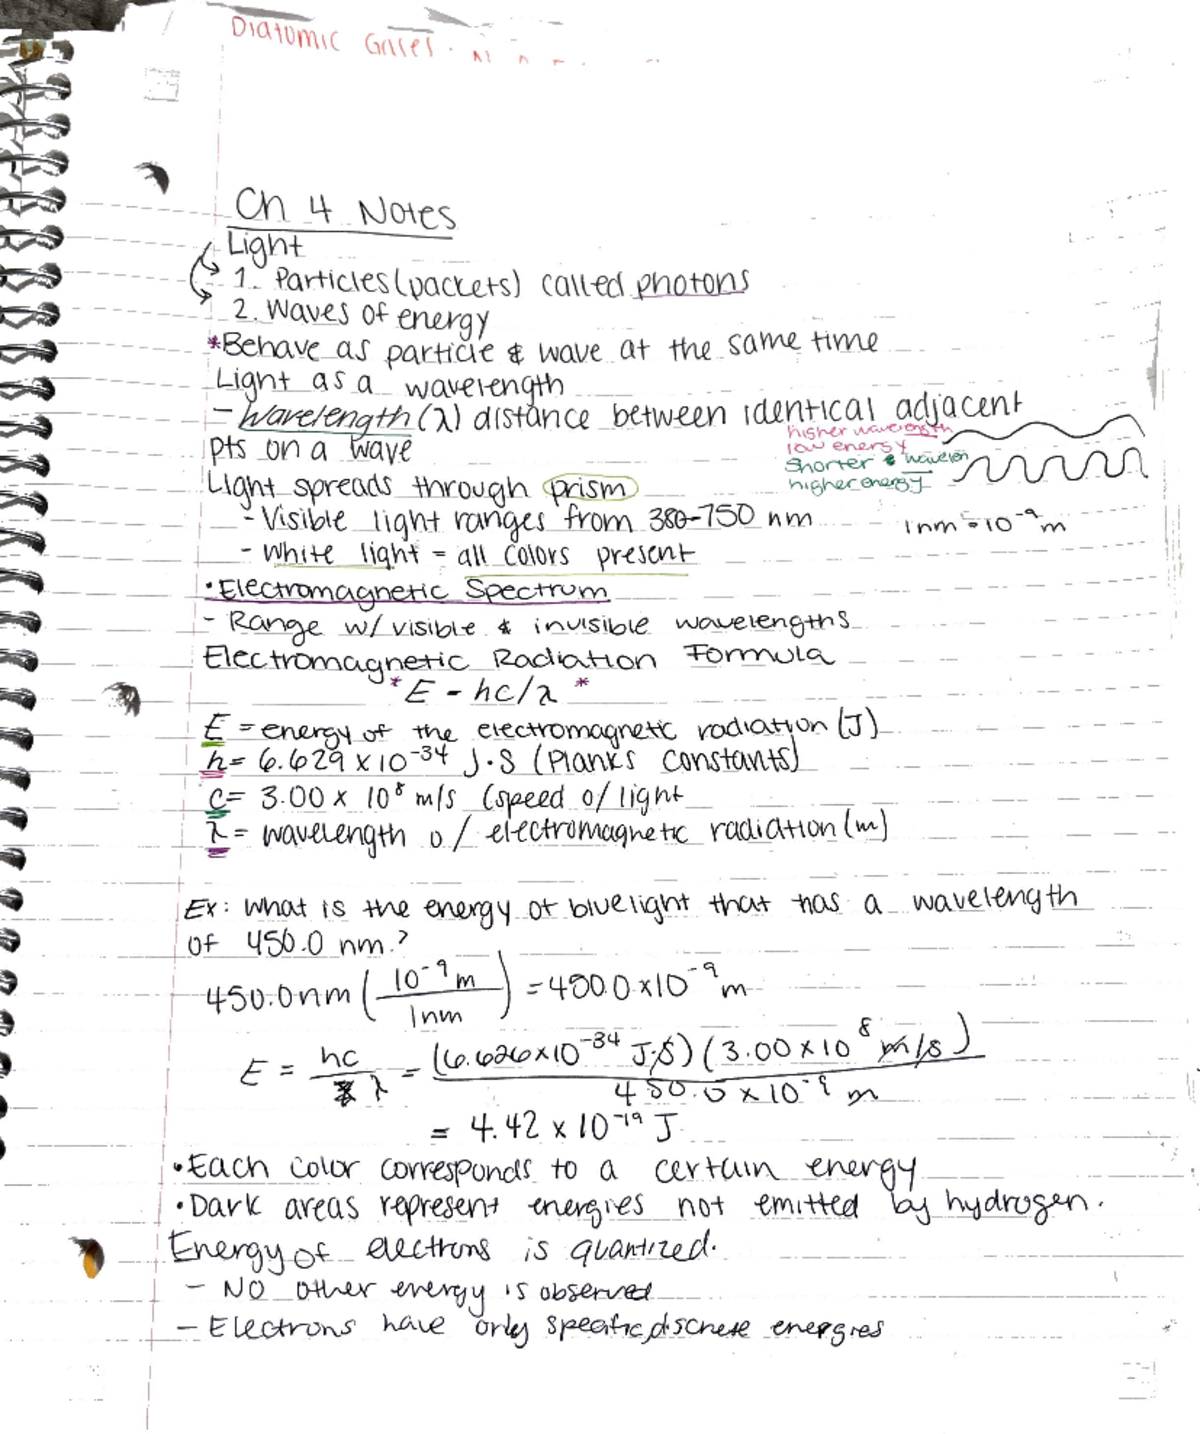 Diatomic Gases.
Ch 4 Notes
Light
1. Particles (packets) called photons
2. Waves of energy
*Behave as particle & wave at the same time
Light as a wavelength
- Wavelength (λ) distance between identical adjacent
pts on a wave
higher wavelength
low energy
shorter wavelen
higher energy
Light spreads through prism
- Visible light ranges from 380-750 nm
1nm = 10⁻⁹m
- White light = all colors present
• Electromagnetic Spectrum
- Range w/ visible & invisible wavelengths
Electromagnetic Radiation Formula
*E = hc/λ *
E = energy of the electromagnetic radiation (J)
h = 6.629 x 10⁻³⁴ J·S (Planks constants)
c = 3.00 x 10⁸ m/s (speed o/ light
λ = wavelength o/ electromagnetic radiation (m)
Ex: What is the energy of blue light that has a wavelength
of 450.0 nm?
450.0nm (10⁻⁹m / 1nm) = 450.0 x10⁻⁹m
E = hc / λ = (6.626x10⁻³⁴ J·S) (3.00 x 10⁸ m/s) / 450.0 x 10⁻⁹ m
= 4.42 x 10⁻¹⁹ J
• Each color corresponds to a certain energy
• Dark areas represent energies not emitted by hydrogen.
Energy of electrons is quantized.
- NO other energy is observed
- Electrons have only specific, discrete energies